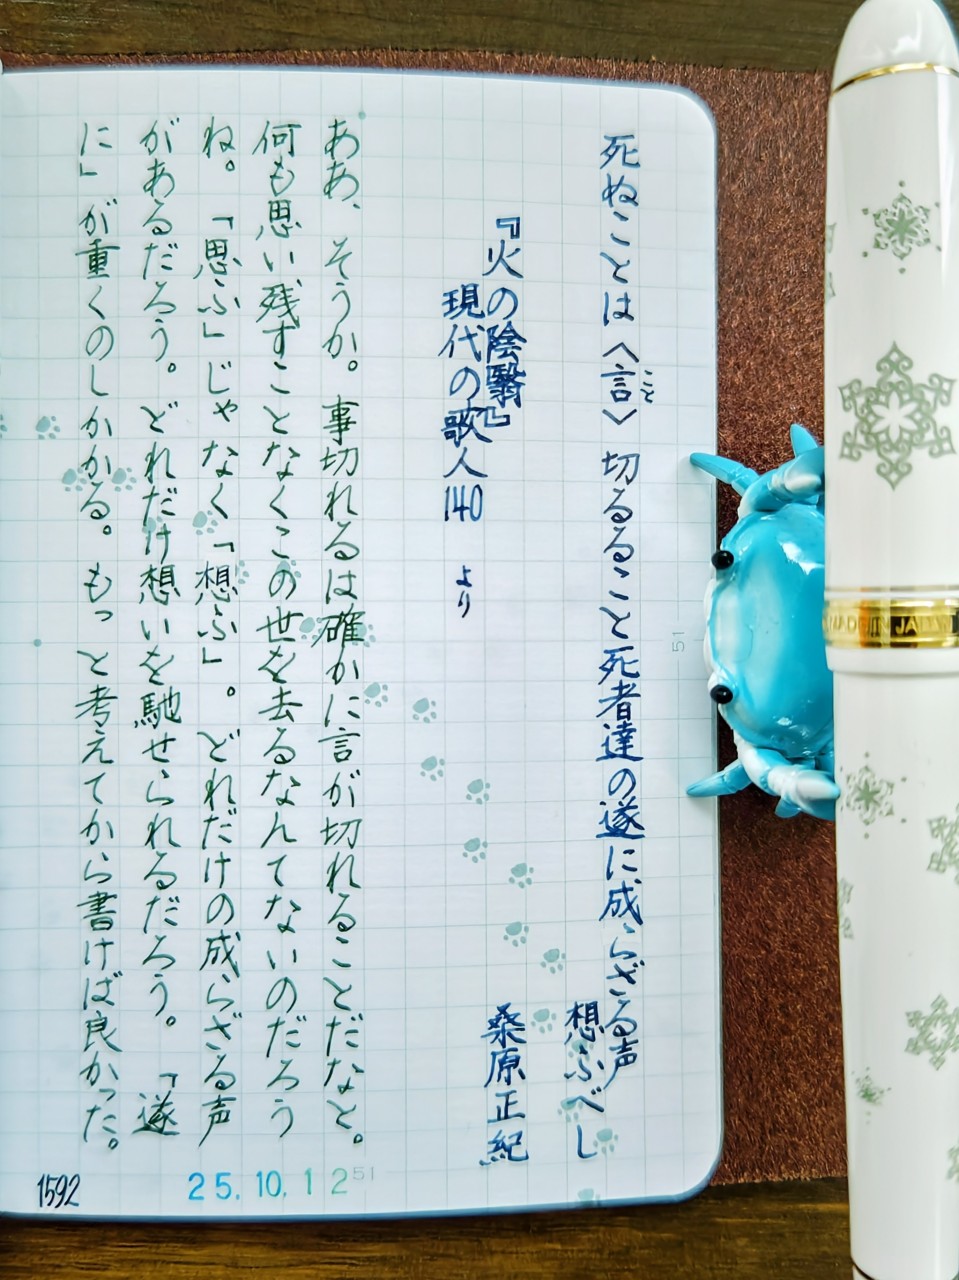 死ぬことは〈言〉切るること死者達の遂に成らざる声
こと
想ふべし
桑原正紀
『火の陰翳』
現代の歌人140 より
ああ、そうか。事切れるは確かに言が切れることだなと。
何も思い残すことなくこの世を去るなんてないのだろう
ね。「思ふ」じゃなく「想ふ」。どれだけの成らざる声
があるだろう。どれだけ想いを馳せられるだろう。「遂
に」が重くのしかかる。もっと考えてから書けば良かった。
1592
25.10.12
51
51